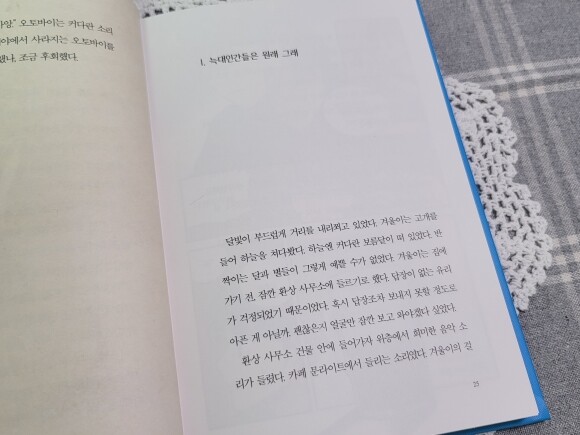 " 오토바이는 커다란 소리
에서 사라지는 오토바이를
조금 후회했다.
1. 늑대인간들은 원래 그래
달빛이 부드럽게 거리를 내리쬐고 있었다. 겨울이는 고개를
들어 하늘을 쳐다봤다. 하늘엔 커다란 보름달이 떠 있었다. 반
짝이는 달과 별들이 그렇게 예쁠 수가 없었다. 겨울이는 집에
가기 전, 잠깐 환상 사무소에 들르기로 했다. 답장이 없는 유리
가 걱정되었기 때문이었다. 혹시 답장조차 보내지 못할 정도로
아픈 게 아닐까. 괜찮은지 얼굴만 잠깐 보고 와야겠다 싶었다.
환상 사무소 건물 안에 들어가자 위층에서 희미한 음악 소
리가 들렸다. 카페 문라이트에서 들리는 소리였다. 겨울이의 걸
25